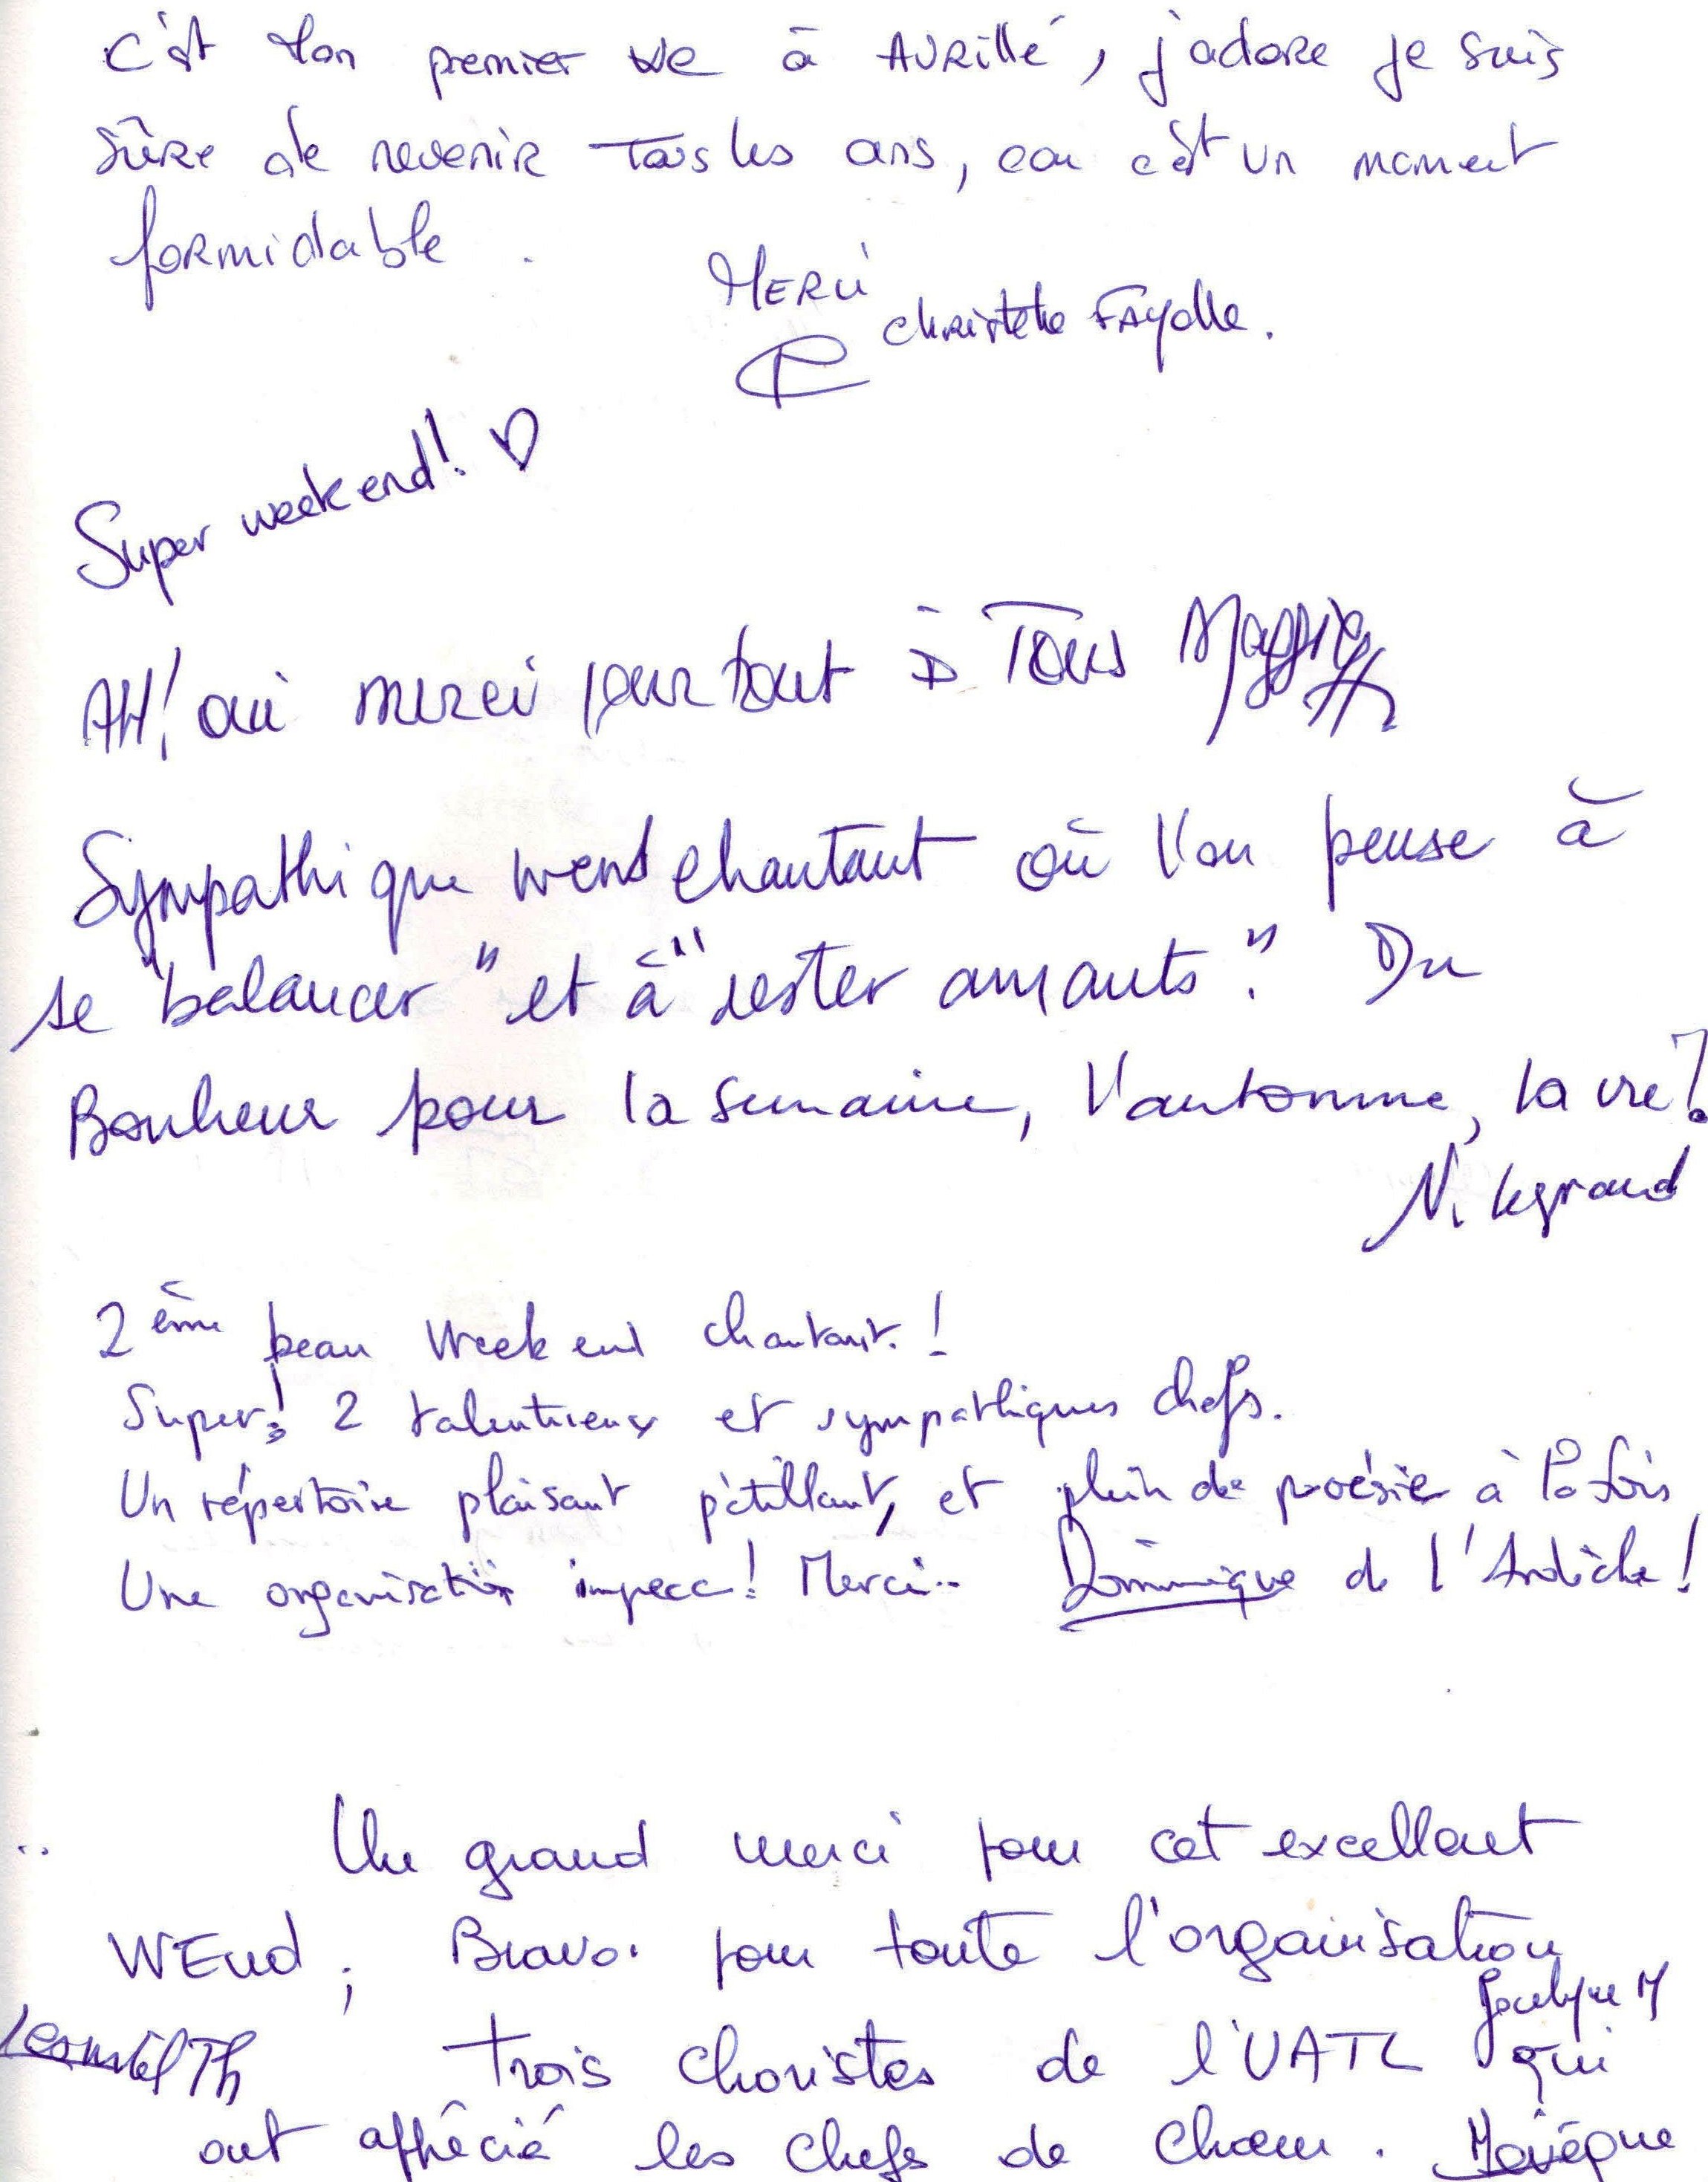 C'est mon premier we à AVRILLÉ, j'adore je suis
sûre de revenir tous les ans, car c'est un moment
formidable.
MERCI
Christelle FAYOLLE.
Super week end! ♡
AH! oui merci pour tout à Tous Maggie
Sympathique wend chantant où l'on pense à
se "balancer" et à "rester amants". Du
Bonheur pour la semaine, l'automne, la vie!
N. Legrand
2ème beau Week end chantant!
Super! 2 talentueux et sympathiques chefs.
Un répertoire plaisant pétillant, et plein de poésie à la fois
Une organisation impecc! Merci.. Dominique de l'Ardèche!
Un grand merci pour cet excellent
WEnd; Bravo pour toute l'organisation
Jocelyne M
Trois choristes de l'UATL qui
ont apprécié les chefs de chœur.